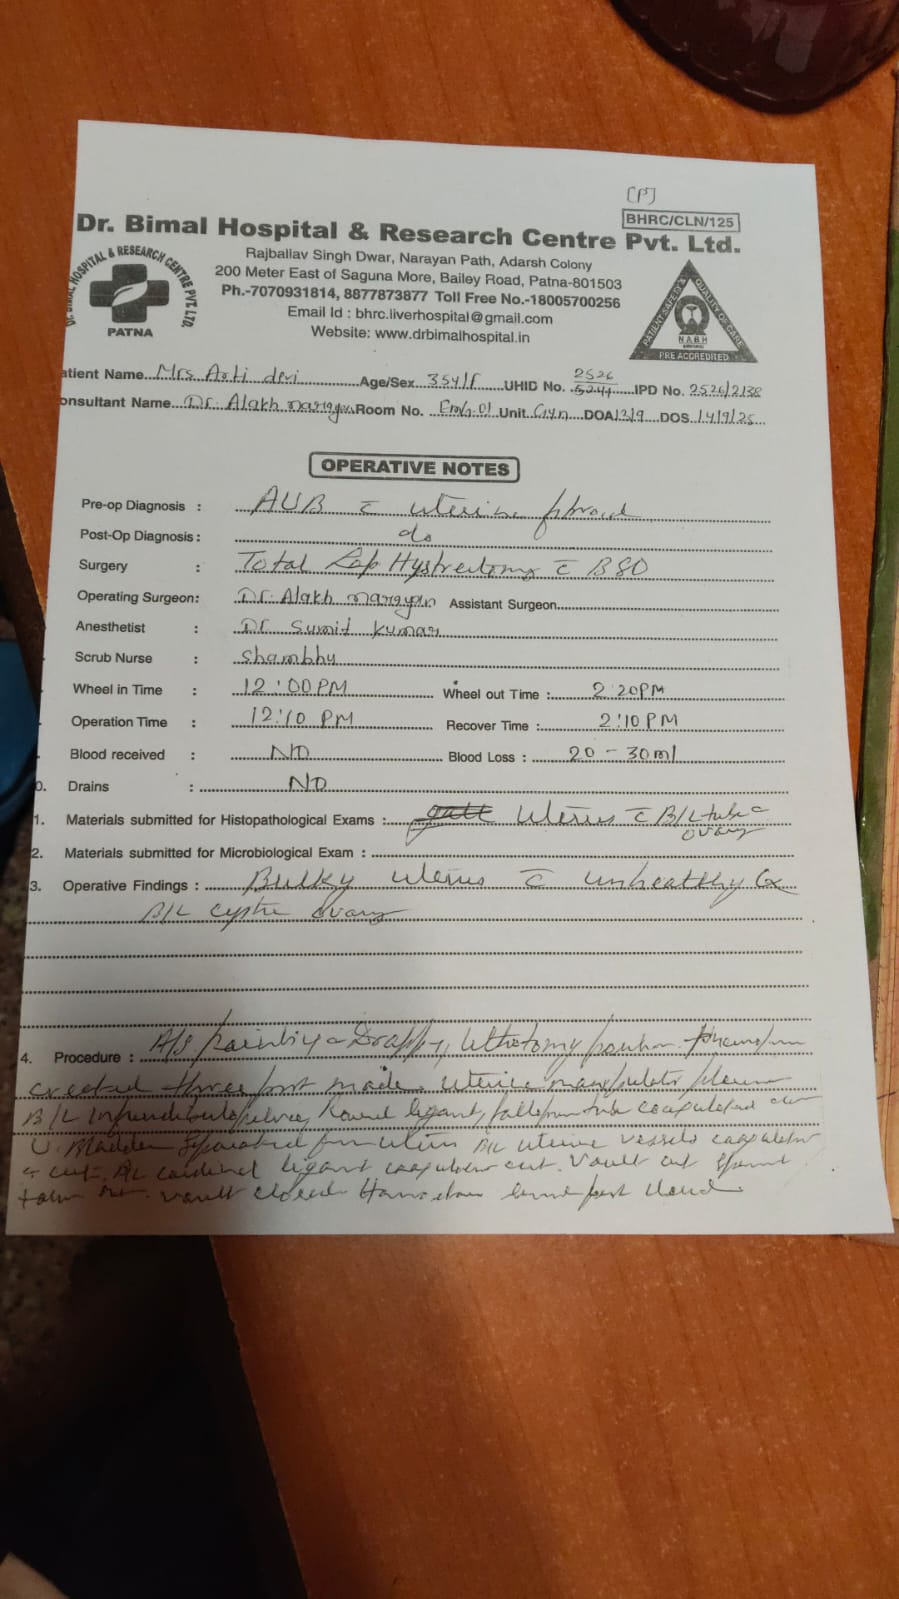 [P]
BHRC/CLN/125
Dr. Bimal Hospital & Research Centre Pvt. Ltd.
Rajballav Singh Dwar, Narayan Path, Adarsh Colony
200 Meter East of Saguna More, Bailey Road, Patna-801503
Ph.-7070931814, 8877873877 Toll Free No.-18005700256
Email Id : bhrc.liverhospital@gmail.com
Website: www.drbimalhospital.in
DR. BIMAL HOSPITAL & RESEARCH CENTRE PVT. LTD.
PATNA
PATIENT SAFETY & QUALITY OF CARE
N.A.B.H
PRE ACCREDITED
atient Name Mrs Arti devi Age/Sex 35y/F UHID No. 2526/5244 IPD No. 2526/2138
onsultant Name Dr. Alakh narayan Room No. Unit Gyn DOA 13/9 DOS 14/9/25
OPERATIVE NOTES
Pre-op Diagnosis : AUB c̄ uterine fibroid
Post-Op Diagnosis : do
Surgery : Total Lap Hystrectomy c̄ BSO
Operating Surgeon: Dr. Alakh narayan Assistant Surgeon
Anesthetist : Dr Sumit Kumar
Scrub Nurse : Shambhu
Wheel in Time : 12:00PM Wheel out Time : 2:20PM
Operation Time : 12:10 PM Recover Time : 2:10PM
Blood received : NO Blood Loss : 20-30ml
0. Drains : NO
1. Materials submitted for Histopathological Exams : Uterus c̄ B/L tube &
ovary
2. Materials submitted for Microbiological Exam :
3. Operative Findings : Bulky uterus c̄ unhealthy Cx
B/L cystic ovary
4. Procedure : painting & Draping, lithotomy position
created three port made. uterine manipulator
B/L Infundibulopelvic, Round ligament, fallopian tube coagulated
U. Bladder separated from uterus B/L uterine vessels
& cut. B/L cardinal ligament cut. Vault cut
vault closed port closed